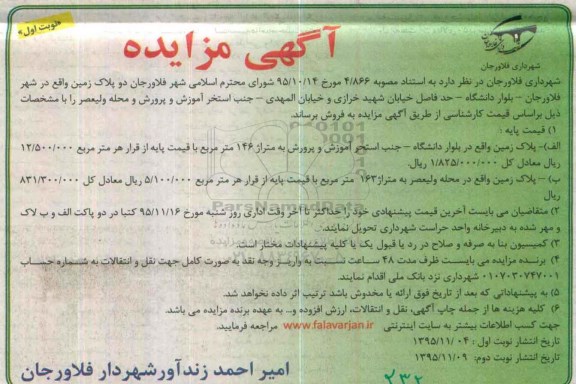 «نوبت اول»
آگهی مزایده
شهرداری فلاورجان
شهرداری فلاورجان در نظر دارد به استناد مصوبه ۴/۸۶۶ مورخ ۹۵/۱۰/۱۴ شورای محترم اسلامی شهر فلاورجان دو پلاک زمین واقع در شهر
فلاورجان – بلوار دانشگاه – حد فاصل خیابان شهید خرازی و خیابان المهدی – جنب استخر آموزش و پرورش و محله ولیعصر را با مشخصات
ذیل براساس قیمت کارشناسی از طریق آگهی مزایده به فروش برساند.
۱) قیمت پایه :
الف)- پلاک زمین واقع در بلوار دانشگاه – جنب استخر آموزش و پرورش به متراژ ۱۴۶ متر مربع با قیمت پایه از قرار هر متر مربع ۱۲/۵۰۰/۰۰۰
ریال معادل کل ۱/۸۲۵/۰۰۰/۰۰۰ ریال.
ب) – پلاک زمین واقع در محله ولیعصر به متراژ ۱۶۳ متر مربع با قیمت پایه از قرار هر متر مربع ۵/۱۰۰/۰۰۰ ریال معادل کل ۸۳۱/۳۰۰/۰۰۰
ریال
۲) متقاضیان می بایست آخرین قیمت پیشنهادی خود را حداکثر تا آخر وقت اداری روز شنبه مورخ ۹۵/۱۱/۱۶ کتبا در دو پاکت الف و ب لاک
و مهر شده به دبیرخانه واحد حراست شهرداری تحویل نمایند.
۳) کمیسیون بنا به صرفه و صلاح در رد یا قبول یک یا کلیه پیشنهادات مختار است.
۴) برنده مزایده می بایست ظرف مدت ۴۸ ساعت نسبت به واریز وجه نقد به صورت کامل جهت نقل و انتقالات به شماره حساب
۰۱۰۷۰۳۰۷۴۷۰۰۱ شهرداری نزد بانک ملی اقدام نمایند.
۵) به پیشنهاداتی که بعد از تاریخ فوق ارائه یا مخدوش باشد ترتیب اثر داده نخواهد شد.
۶) کلیه هزینه ها از جمله چاپ آگهی، نقل و انتقالات، ارزش افزوده و... به عهده برنده مزایده می باشد.
جهت کسب اطلاعات بیشتر به سایت اینترنتی www.falavarjan.ir مراجعه فرمایید.
تاریخ انتشار نوبت اول : ۱۳۹۵/۱۱/۰۴
تاریخ انتشار نوبت دوم: ۱۳۹۵/۱۱/۰۹
امیر احمد زندآور شهردار فلاورجان
۲۳۲
ParsNamadData